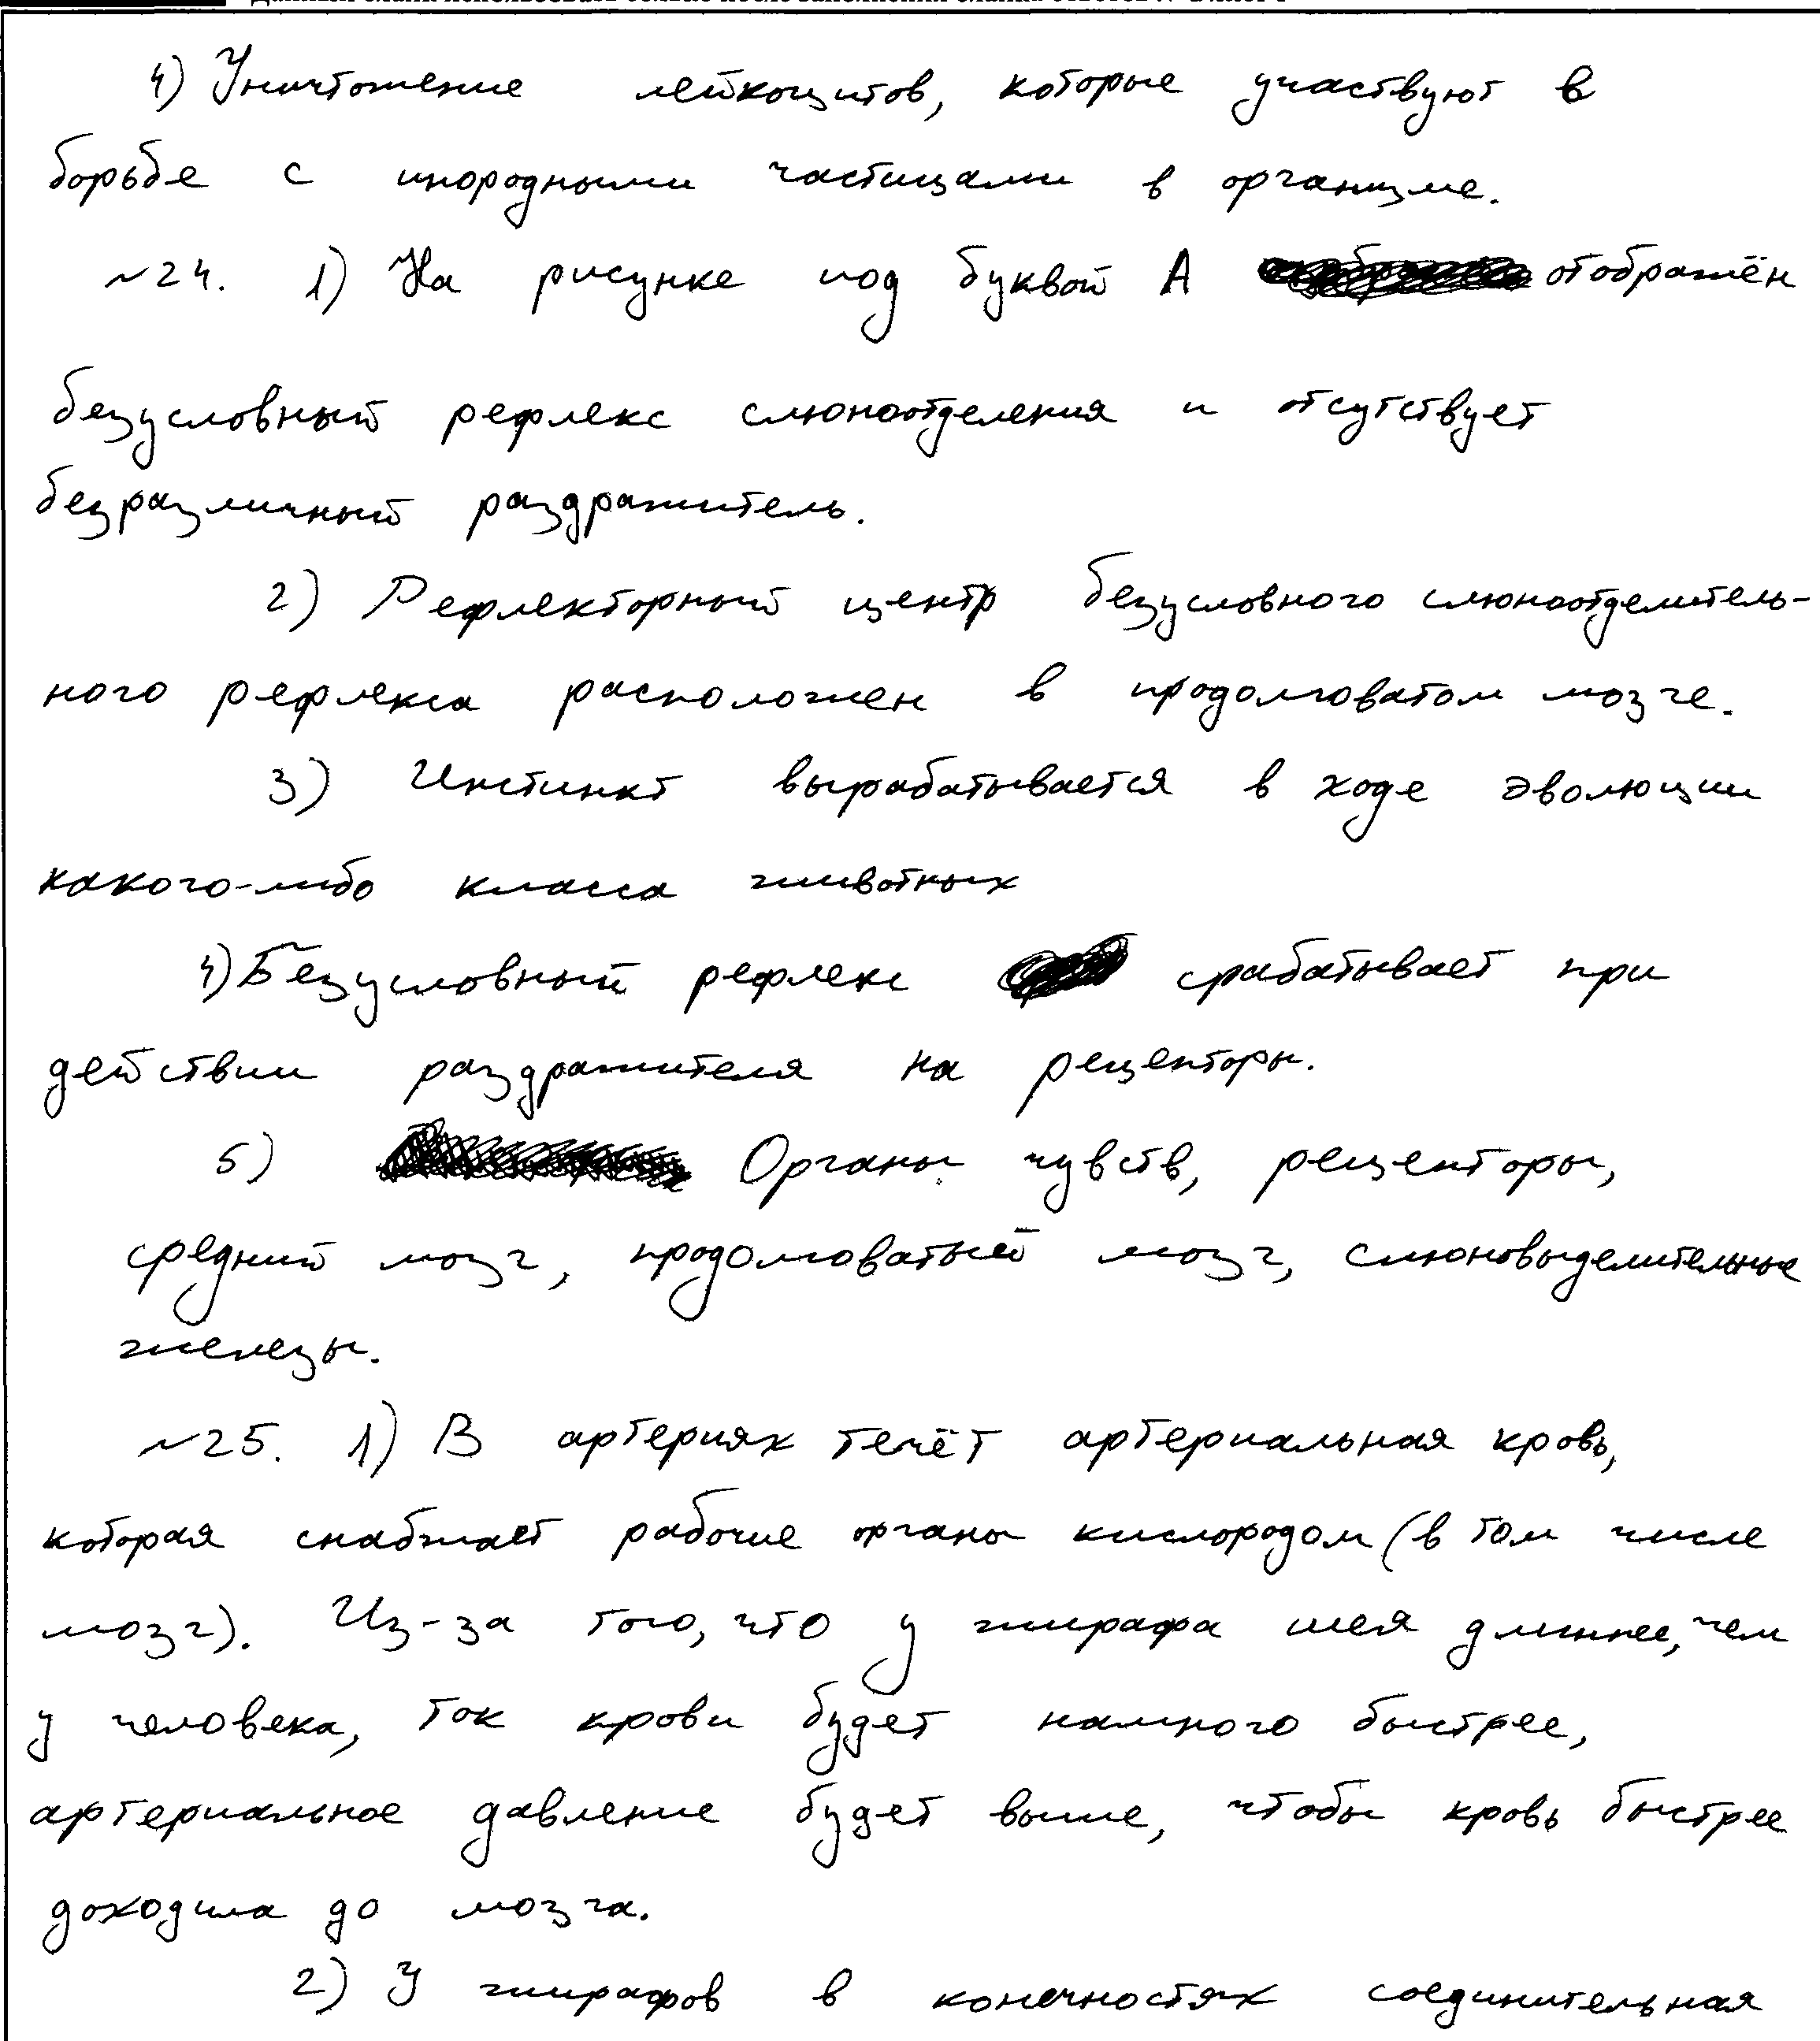 4) Уничтожение лейкоцитов, которые участвуют в
борьбе с инородными частицами в организме.
№24. 1) На рисунке под буквой А отображён
безусловный рефлекс слюноотделения и отсутствует
безразличный раздражитель.
2) Рефлекторный центр безусловного слюноотделитель-
ного рефлекса расположен в продолговатом мозге.
3) Инстинкт вырабатывается в ходе эволюции
какого-либо класса животных
4) Безусловный рефлекс срабатывает при
действии раздражителя на рецепторы.
5) Органы чувств, рецепторы,
средний мозг, продолговатый мозг, слюновыделительные
железы.
№25. 1) В артериях течёт артериальная кровь,
которая снабжает рабочие органы кислородом (в том числе
мозг). Из-за того, что у жирафа шея длиннее, чем
у человека, ток крови будет намного быстрее,
артериальное давление будет выше, чтобы кровь быстрее
доходила до мозга.
2) У жирафов в конечностях соединительная